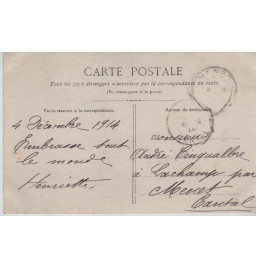 CARTE POSTALE
Tous les pays étrangers n'acceptent pas la correspondance au recto
(Se renseigner à la poste)
Partie réservée à la correspondance
Adresse du destinataire
4 Décembre 1914
Embrasse tout
le monde
Henriette
Monsieur
André Cinqualbre
à Lachamp par
Menet
Cantal